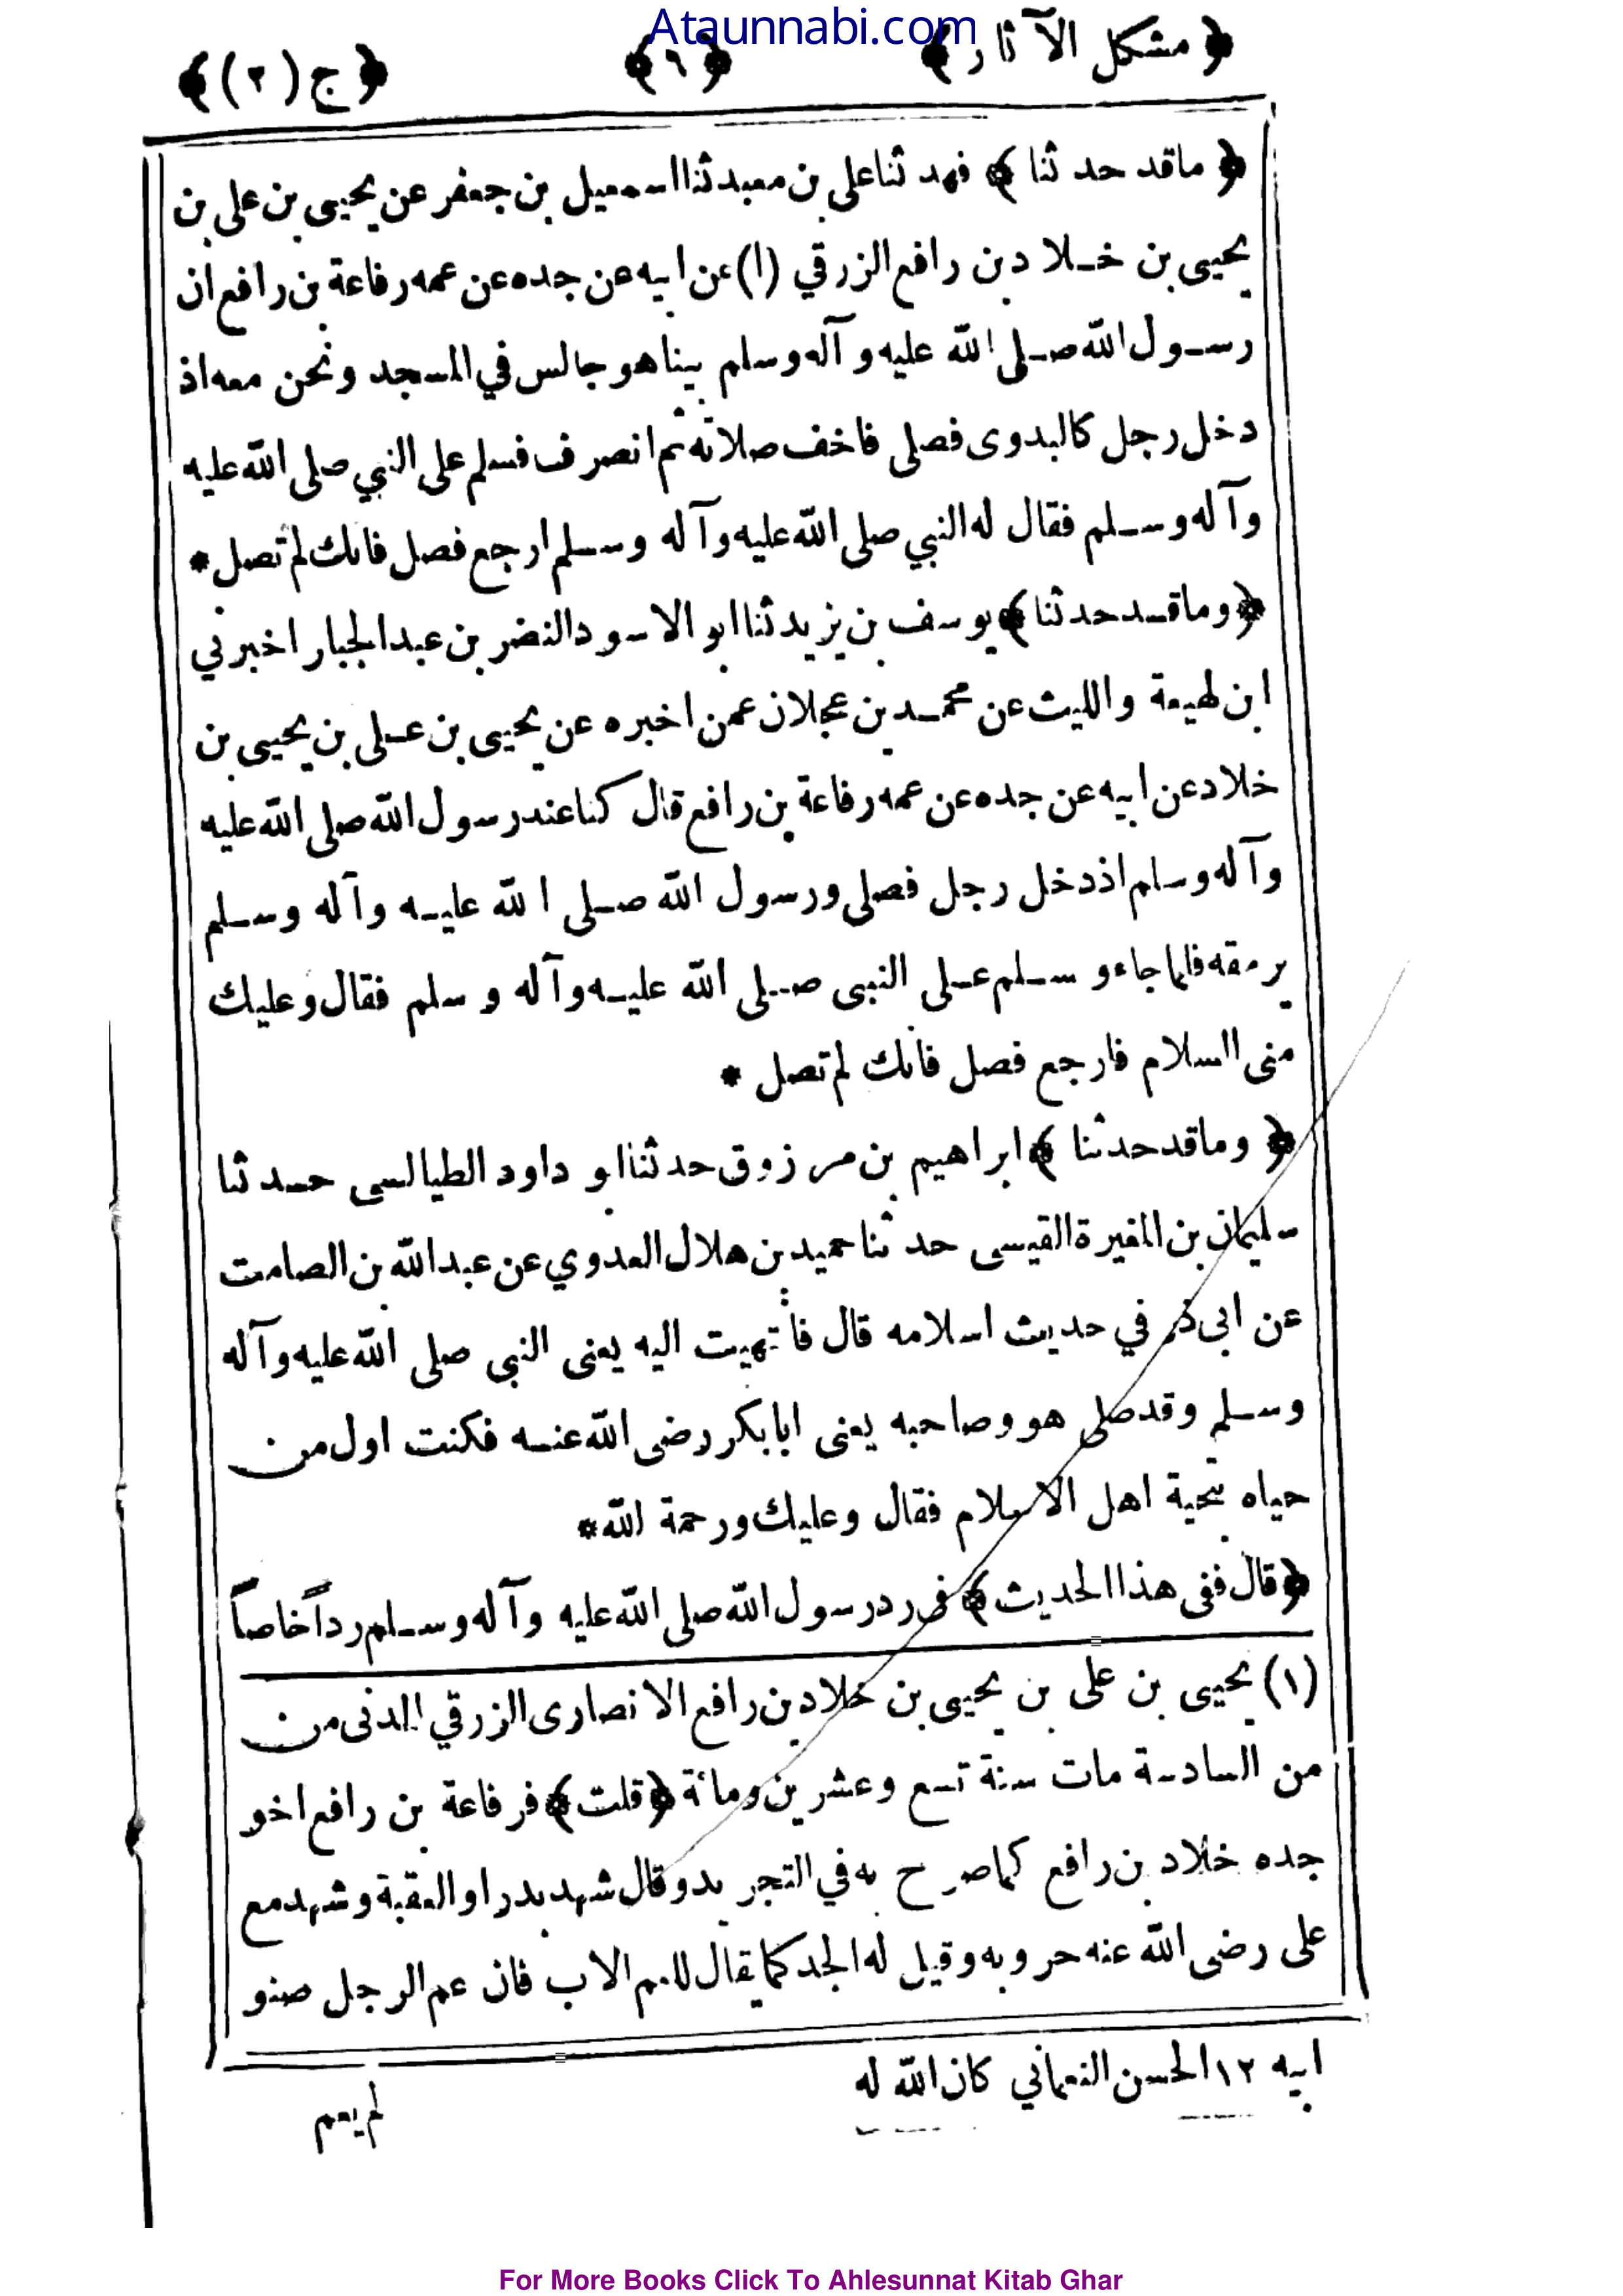 Ataunnabi.com
﴿ مشكل الآثار ﴾ ﴿٦﴾ ﴿ج (٢)﴾
﴿ ماقد حدثنا ﴾ فهد ثنا على بن معبد ثنا اسمعيل بن جعفر عن يحيى بن على بن
يحيى بن خلاد بن رافع الزرقي (١) عن ابيه عن جده عن عمه رفاعة بن رافع ان
رسول الله صلى الله عليه وآله وسلم بينا هو جالس في المسجد ونحن معه اذ
دخل رجل كالبدوى فصلى فاخف صلاته ثم انصرف فسلم على النبي صلى الله عليه
وآله وسلم فقال له النبي صلى الله عليه وآله وسلم ارجع فصل فانك لم تصل *
﴿وماقد حدثنا﴾ يوسف بن يزيد ثنا ابو الاسود النضر بن عبد الجبار اخبرني
ابن لهيعة والليث عن محمد بن عجلان عمن اخبره عن يحيى بن على بن يحيى بن
خلاد عن ابيه عن جده عن عمه رفاعة بن رافع قال كنا عند رسول الله صلى الله عليه
وآله وسلم اذ دخل رجل فصلى ورسول الله صلى الله عليه وآله وسلم
يرمقه فلما جاء وسلم على النبى صلى الله عليه وآله وسلم فقال وعليك
منى السلام فارجع فصل فانك لم تصل *
﴿ وماقد حدثنا ﴾ ابراهيم بن مرزوق حدثنا ابو داود الطيالسى حدثنا
سليمان بن المغيرة القيسى حدثنا حميد بن هلال العدوي عن عبد الله بن الصامت
عن ابى ذر في حديث اسلامه قال فانتهيت اليه يعنى النبى صلى الله عليه وآله
وسلم وقد صلى هو وصاحبه يعنى ابا بكر رضى الله عنه فكنت اول من
حياه بتحية اهل الاسلام فقال وعليك ورحمة الله *
﴿قال ففى هذا الحديث﴾ فرد رسول الله صلى الله عليه وآله وسلم رداً خاصاً
(١) يحيى بن على بن يحيى بن خلاد بن رافع الانصارى الزرقي المدنى من
من السادسة مات سنة تسع وعشرين ومائة ﴿قلت﴾ فرفاعة بن رافع اخو
جده خلاد بن رافع كما صرح به في التجريد وقال شهد بدرا والعقبة وشهد مع
على رضى الله عنه حروبه وقيل له الجد كما يقال للعم الاب فان عم الرجل صنو
ابيه ١٢ الحسن النعماني كان الله له
لم يعم
For More Books Click To Ahlesunnat Kitab Ghar